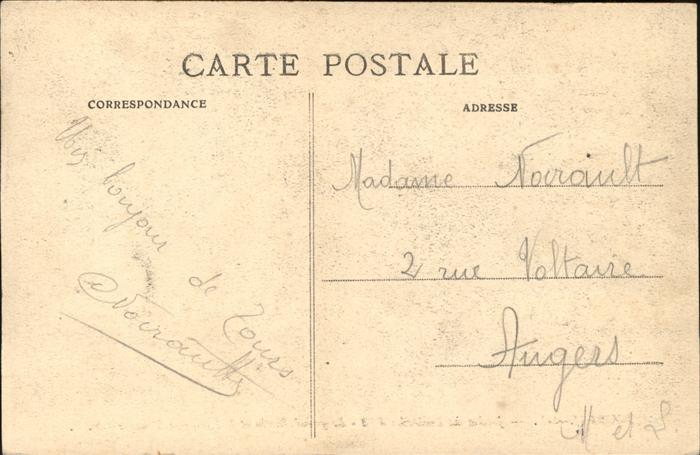 CARTE POSTALE
CORRESPONDANCE
ADRESSE
bonjour de Tours
Noirault
Madame Noirault
2 rue Voltaire
Angers
M et L